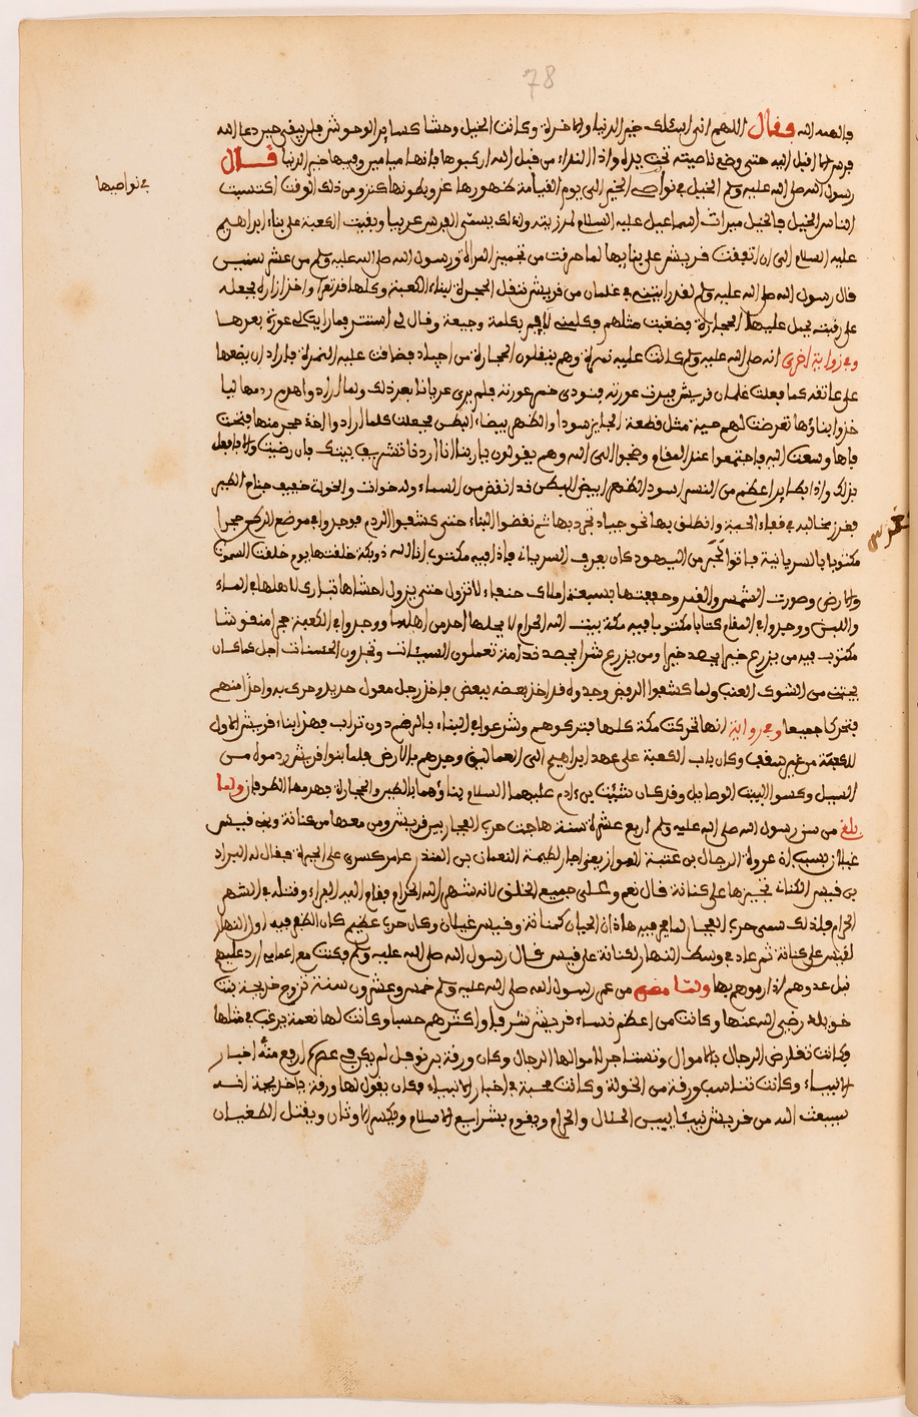 78
فالهمه الله فقال اللهم اني اسئلك خير الدنيا والاخرة وكانت الخيل وحشا كسائر الوحوش فلم يبق حين دعا الله
فرس الا اقبل اليه حتى وضع ناصيته تحت يده واذا النداء من قبل الله اركبوها فانها ميامين وفيها خير الدنيا قال
رسول الله صلى الله عليه وسلم الخيل في نواصي الخير الى يوم القيامة ظهورها عز وبطونها كنز ومن ذلك الوقت اكتسبت
في نواصيها
الناس الخيل فالخيل ميراث اسماعيل عليه السلام لذريته ولذلك يسمى الفرس عربيا وبقيت الكعبة على بناء ابراهيم
عليه السلام الى ان اتفقت قريش على بنايها لما حرقت من تجمير المراة ورسول الله صلى الله عليه وسلم من عشر سنين
قال رسول الله صلى الله عليه وسلم لقد رايتني في غلمان من قريش ننقل الحجرة لبناء الكعبة وكلها قد تعرا واخذ ازاره يجعله
على رقبته يحمل عليها الحجارة فصنعت مثلهم فكلمني لاقيم بكلمة وجيعة وقال لي استتر فما رايت لي عورة بعدها
وفي رواية اخرى انه صلى الله عليه وسلم كانت عليه نمرة وهم ينقلون الحجارة من اجياد فضاقت عليه النمرة فاراد ان يضعها
على عاتقه كما فعلت غلمان قريش فبدت عورته فنودي خمر عورتك فلم يرى عريانا بعد ذلك ولما ارادوا هدم ردمها ليا
خذوا بناؤها تعرضت لهم حية مثل قطعة الجايز سودا والظهر بيضاء البطن فجعلت كلما ارادوا اخذ حجر منها فتحت
فاها وسعت اليه فاجتمعوا عند المقام وعجوا الى الله وهم يقولون يا ربنا انا اردنا تشريف بيتك فان رضيت والا فافعل
بذلك واذا بطاير اعظم من النسر اسود الظهر ابيض البطن قد انقض من السماء وله خوات والخوات حفيف جناح الطير
فغرز مخالبه في قفاء الحية وانطلق بها نحو جياد تجر ذنبها ثم نقضوا البناء حتى كشفوا الردم فوجدوا في موضع الركن حجرا
مكتوبا بالسريانية فاتوا بحبر من اليهود كان يعرف السريانة فاذا فيه مكتوب انا الله ذو بكة خلقتها يوم خلقت السموت
والارض وصورت الشمس والقمر وحففتها بسبعة املاك حنفاء لا تزول حتى يزول اخشاها تبارك لاهلها في الماء
واللبن ووجدوا في المقام كتابا مكتوبا فيه مكة بيت الله الحرام لا يحلها احد من اهلها ووجدوا في الكعبة حجرا منقوشا
مكتوب فيه من يزرع خيرا يحصد خيرا ومن يزرع شرا يحصد ندامة تعملون السيئات وتجزون الحسنات اجل كما كان
يجتنى من الشوك العنب ولما كشفوا الربض وجدوه قد اخذ بعضه ببعض فاخذ رجل معول حديد وحرك به واحدا منهم
فتحركا جميعا وفي رواية انها تحركت مكة كلها فتركوهم وشرعوا في البناء بالرضم دون تراب فهذا بناء قريش الاول
للكعبة من غير سقف وكان باب الكعبة على عهد ابراهيم الى العماليق وجرهم بالارض فلما بنوا قريش ردموه من
السيل وكسوا البيت الوصايل وقد كان شيت بن ءادم عليهما السلام بناؤهما بالطين والحجارة فهدمها الطوفان ولما
بلغ من سن رسول الله صلى الله عليه وسلم اربع عشرة سنة هاجت حرب الفجار بين قريش ومن معها من كنانة وبين قيس
غيلان بسبب ان عروة الرحال بن عتبة الهوازني اجار لطيمة النعمان بن المنذر عامر كسرى على الحيرة فقال له البراد
بن قيس الكناني تجيزها على كنانة قال نعم وعلى جميع الخلق لانه شهر الله الحرام فقام اليه البراد وقتله في الشهر
الحرام فلذلك سمي حرب الفجار لما فجر فيه هاذان الحيان كنانة وقيس غيلان وكان حرب عظيم كان الظفر فيه اول النهار
لقيس على كنانة ثم عاد في وسط النهار لكنانة على قيس قال رسول الله صلى الله عليه وسلم وكنت مع اعمامي ارد عليهم
نبل عدوهم اذا رموهم بها ولما مضى من عمر رسول الله صلى الله عليه وسلم خمس وعشرون سنة تزوج خديجة بنت
خويلد رضي الله عنها وكانت من اعظم نساء قريش شرفا واكثرهم حسبا وكانت لها نعمة يرغب في مثلها
وكانت تقارض الرجال بالاموال وتستاجر لاموالها الرجال وكان ورقة بن نوفل لم يكن في عصره ارفع منه اخبار
الانبياء وكانت تناسب ورقة من الخولة وكانت محبة في اخبار الانبياء وكان يقول لها ورقة يا خديجة انه
سيبعث الله من قريش نبيئا يبين الحلال والحرام ويقوم بشرايع الاسلام ويكسر الاوثان ويقتل الطغيان